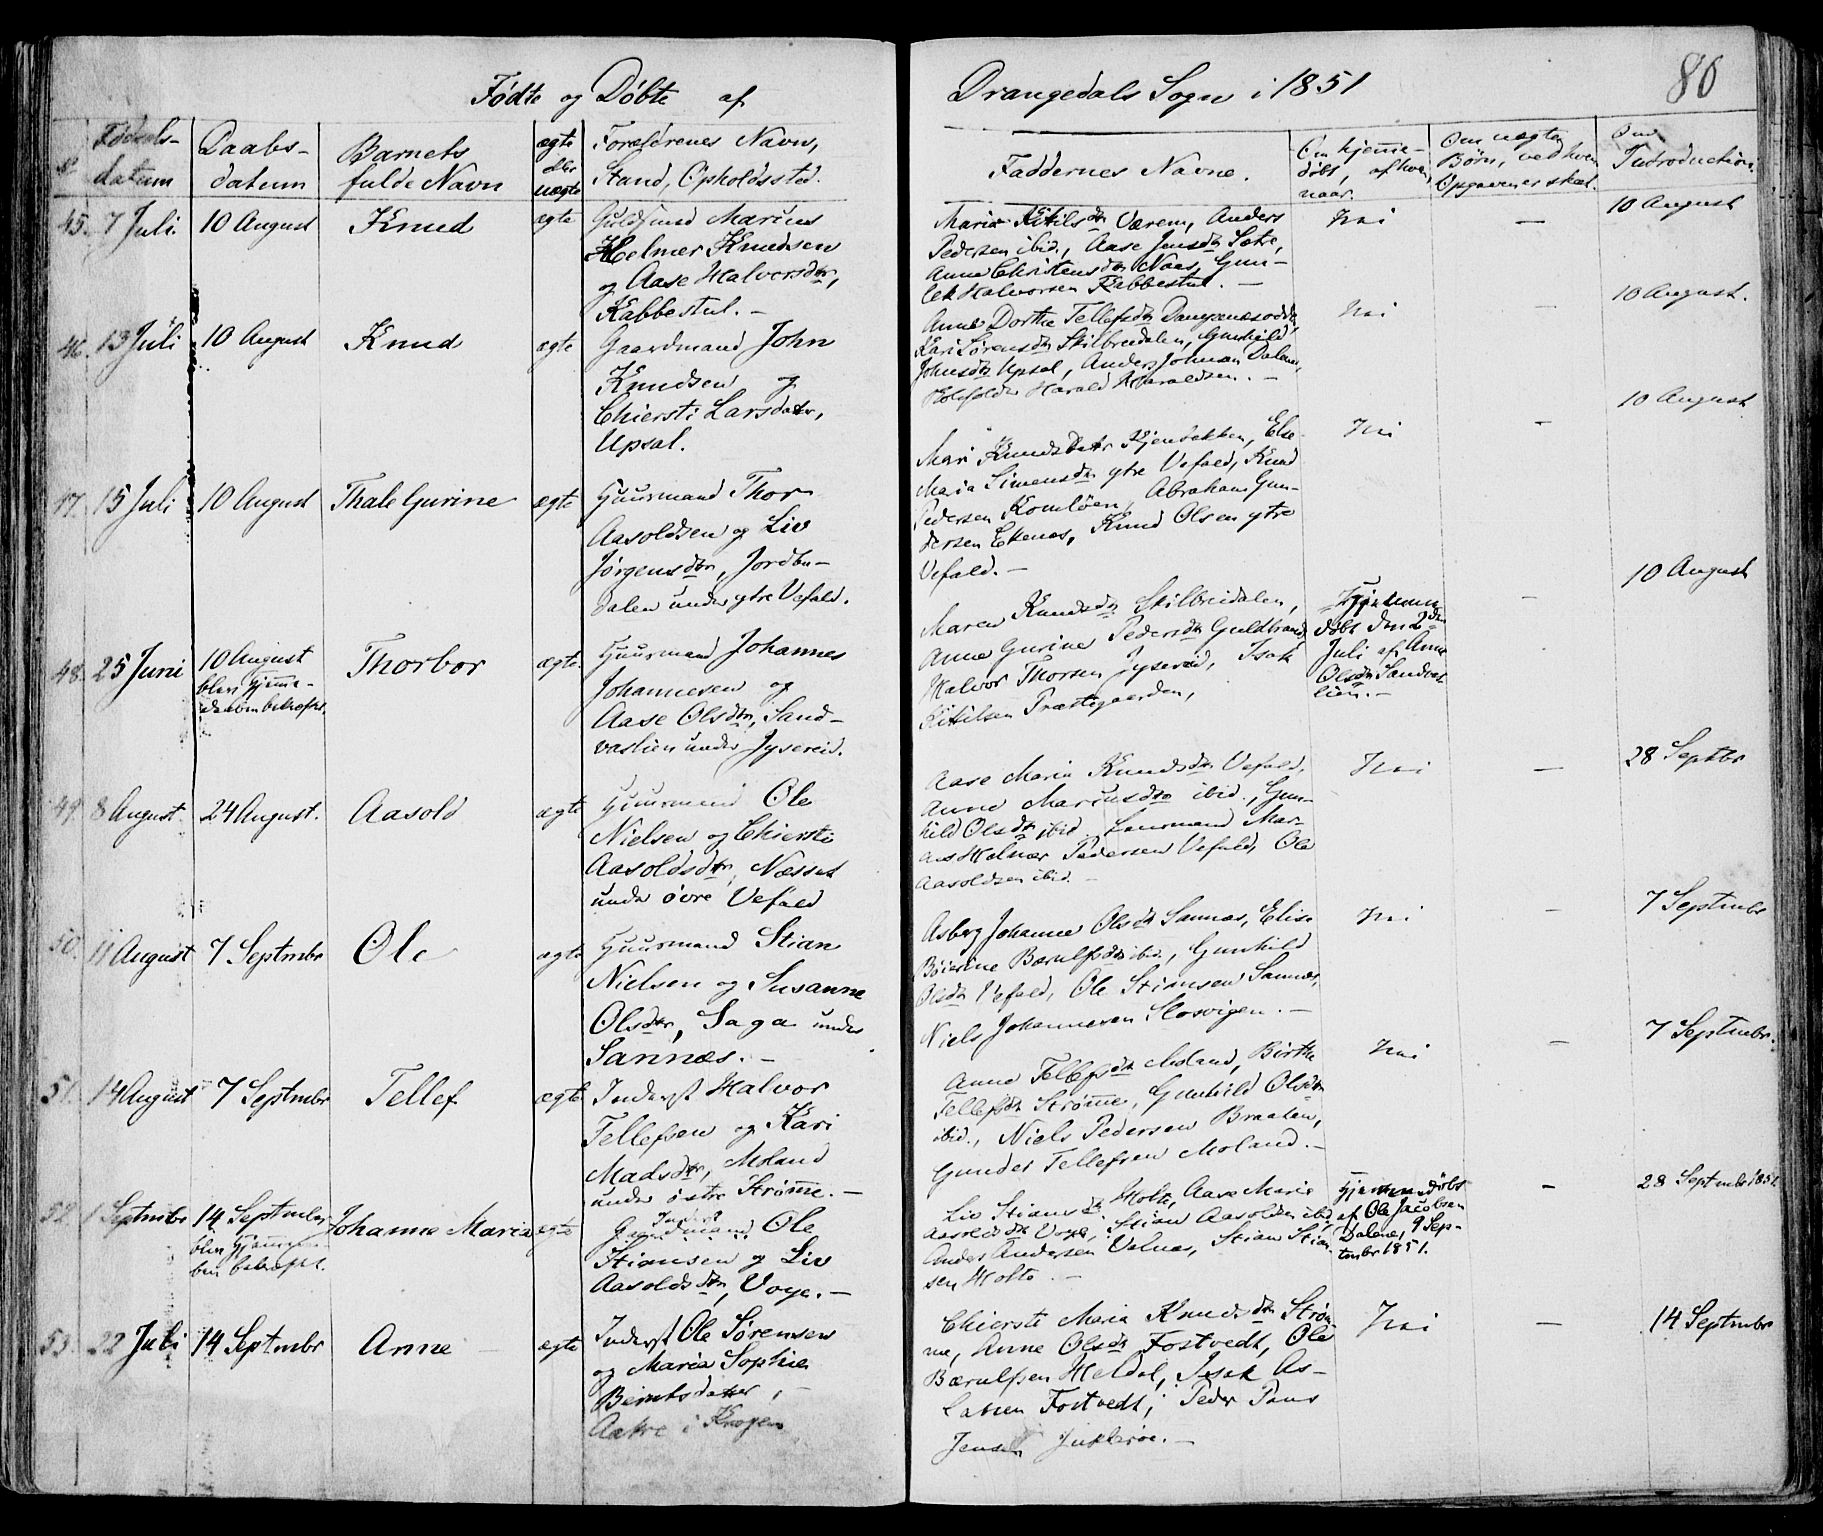 Fødte og Døbte af
Drangedals Sogn i 1851
86
Fødsels-
datum
Daabs-
datum
Barnets
fulde Navn
ægte
eller
uægte
Forældrenes Navn,
Stand, Opholdssted.
Faddernes Navne.
Om hjemme-
døbt, af hvem,
naar.
Om uægte
Børn, ved hvem
Opgaven er skeet.
Om
Introduction.
45. 7 Juli. 10 August Knud ægte
Guldsmed Marius
Helmer Knudsen
og Aase Halvorsdtr,
Kabbestul. –
Maria Kittilsdtr Værem, Anders
Pedersen ibid., Aase Jensdtr Sætre,
Anne Christensdtr Naas, Gun-
lek Halvorsen Kabbestul. –
Nei
–
10 August
46. 13 Juli 10 August Knud ægte
Gaardmand John
Knudsen og
Chiersti Larsdatr,
Upsal.
Anne Dorthe Tellefsdtr
Kari Sørensdtr Skilbreidalen, Gunhild
Johnsdtr Upsal, Anders Johnsen Dalene,
Harald Haraldsen. –
Nei
–
10 August.
47. 15 Juli 10 August Thale Gurine ægte
Huusmand Thor
Aasoldsen og Liv
Jørgensdtr, Jordbu-
dalen under ytre Vefald.
Mari Knudsdatr Kjenbekken, Else
Maria Simensdtr ytre Vefald, Knud
Pedersen Komløen, Abraham Gun-
dersen Ekenes, Knud Olsen ytre
Vefald. –
Nei
–
10 August
48. 25 Juni 10 August Thorbor ægte
blev hjemme-
daaben bekræftet.
Huusmand Johannes
Johannesen og
Aase Olsdtr, Sand-
vaslien under Jysereid.
Maren Knudsdtr Skilbreidalen,
Anne Gurine Pedersdtr
Halvor Thorsen Jysereid, Isak
Kittilsen Præstegaarden,
Hjemme
døbt den 2den
Juli af Anne
Olsdtr Sandvas-
lien. –
–
10 August
49. 8 August 24 August. Aasold ægte
Huusmand Ole
Nielsen og Chiersti
Aasoldsdtr, Næsset
under øvre Vefald
Aase Maria Knudsdtr Vefald,
Anne Mariusdtr ibid., Gun-
hild Olsdtr ibid. Mar-
ius Helmer Pedersen Vefald, Ole
Aasoldsen ibid. –
Nei
–
28 Septbr
50. 11 August 7 Septmbr Ole ægte
Huusmand Stian
Nielsen og Susanne
Olsdtr, Saga under
Sannæs. –
Asberg Johanne Olsdtr Sannæs, Elise
Bærulfsdtr ibid., Gunhild
Olsdtr Vefald, Ole Stiansen Sannæs,
Niels Johannesen Slosvigen. –
Nei
–
7 Septmbr
51. 14 August 7 Septmbr Tellef ægte
Inderst Halvor
Tellefsen og Kari
Madsdtr, Moland
under østre Strømme. –
Anne Tellefsdtr Moland, Birthe
Tellefsdtr Strømme, Gunhild Olsdtr
ibid., Niels Pedersen Braaten,
Gunder Tellefsen Moland. –
Nei
–
7 Septmbr.
52. 1 Septmbr 14 Septmbr Johanne Maria ægte
blev hjemmedaa-
ben bekræftet.
Inderst
Gaardmand Ole
Stiansen og Liv
Aasoldsdtr, Voje. –
Liv Stiansdtr Holte, Aase Marie
Aasoldsdtr Voje, Stian Aasoldsen ibid.,
Anders Andersen Vefnæs, Stian Stian-
sen Holte. –
Hjemmedøbt
af Ole Jacobsen
Dalene, 9 Sep-
tmbr 1851.
–
28 Septmbr 1851.
53. 22 Juli 14 Septmbr Anne ægte
Inderst Ole Sørensen
og Maria Sophie
Berntsdatter, –
Aakre i Krogen
Chiersti Maria Knudsdtr Strøm-
me, Anne Olsdtr Fostvedt, Ole
Bærulfsen Heldal, Isak As-
laksen Fostvedt, Peder Paus
Jensen –
Nei
–
14 Septmbr